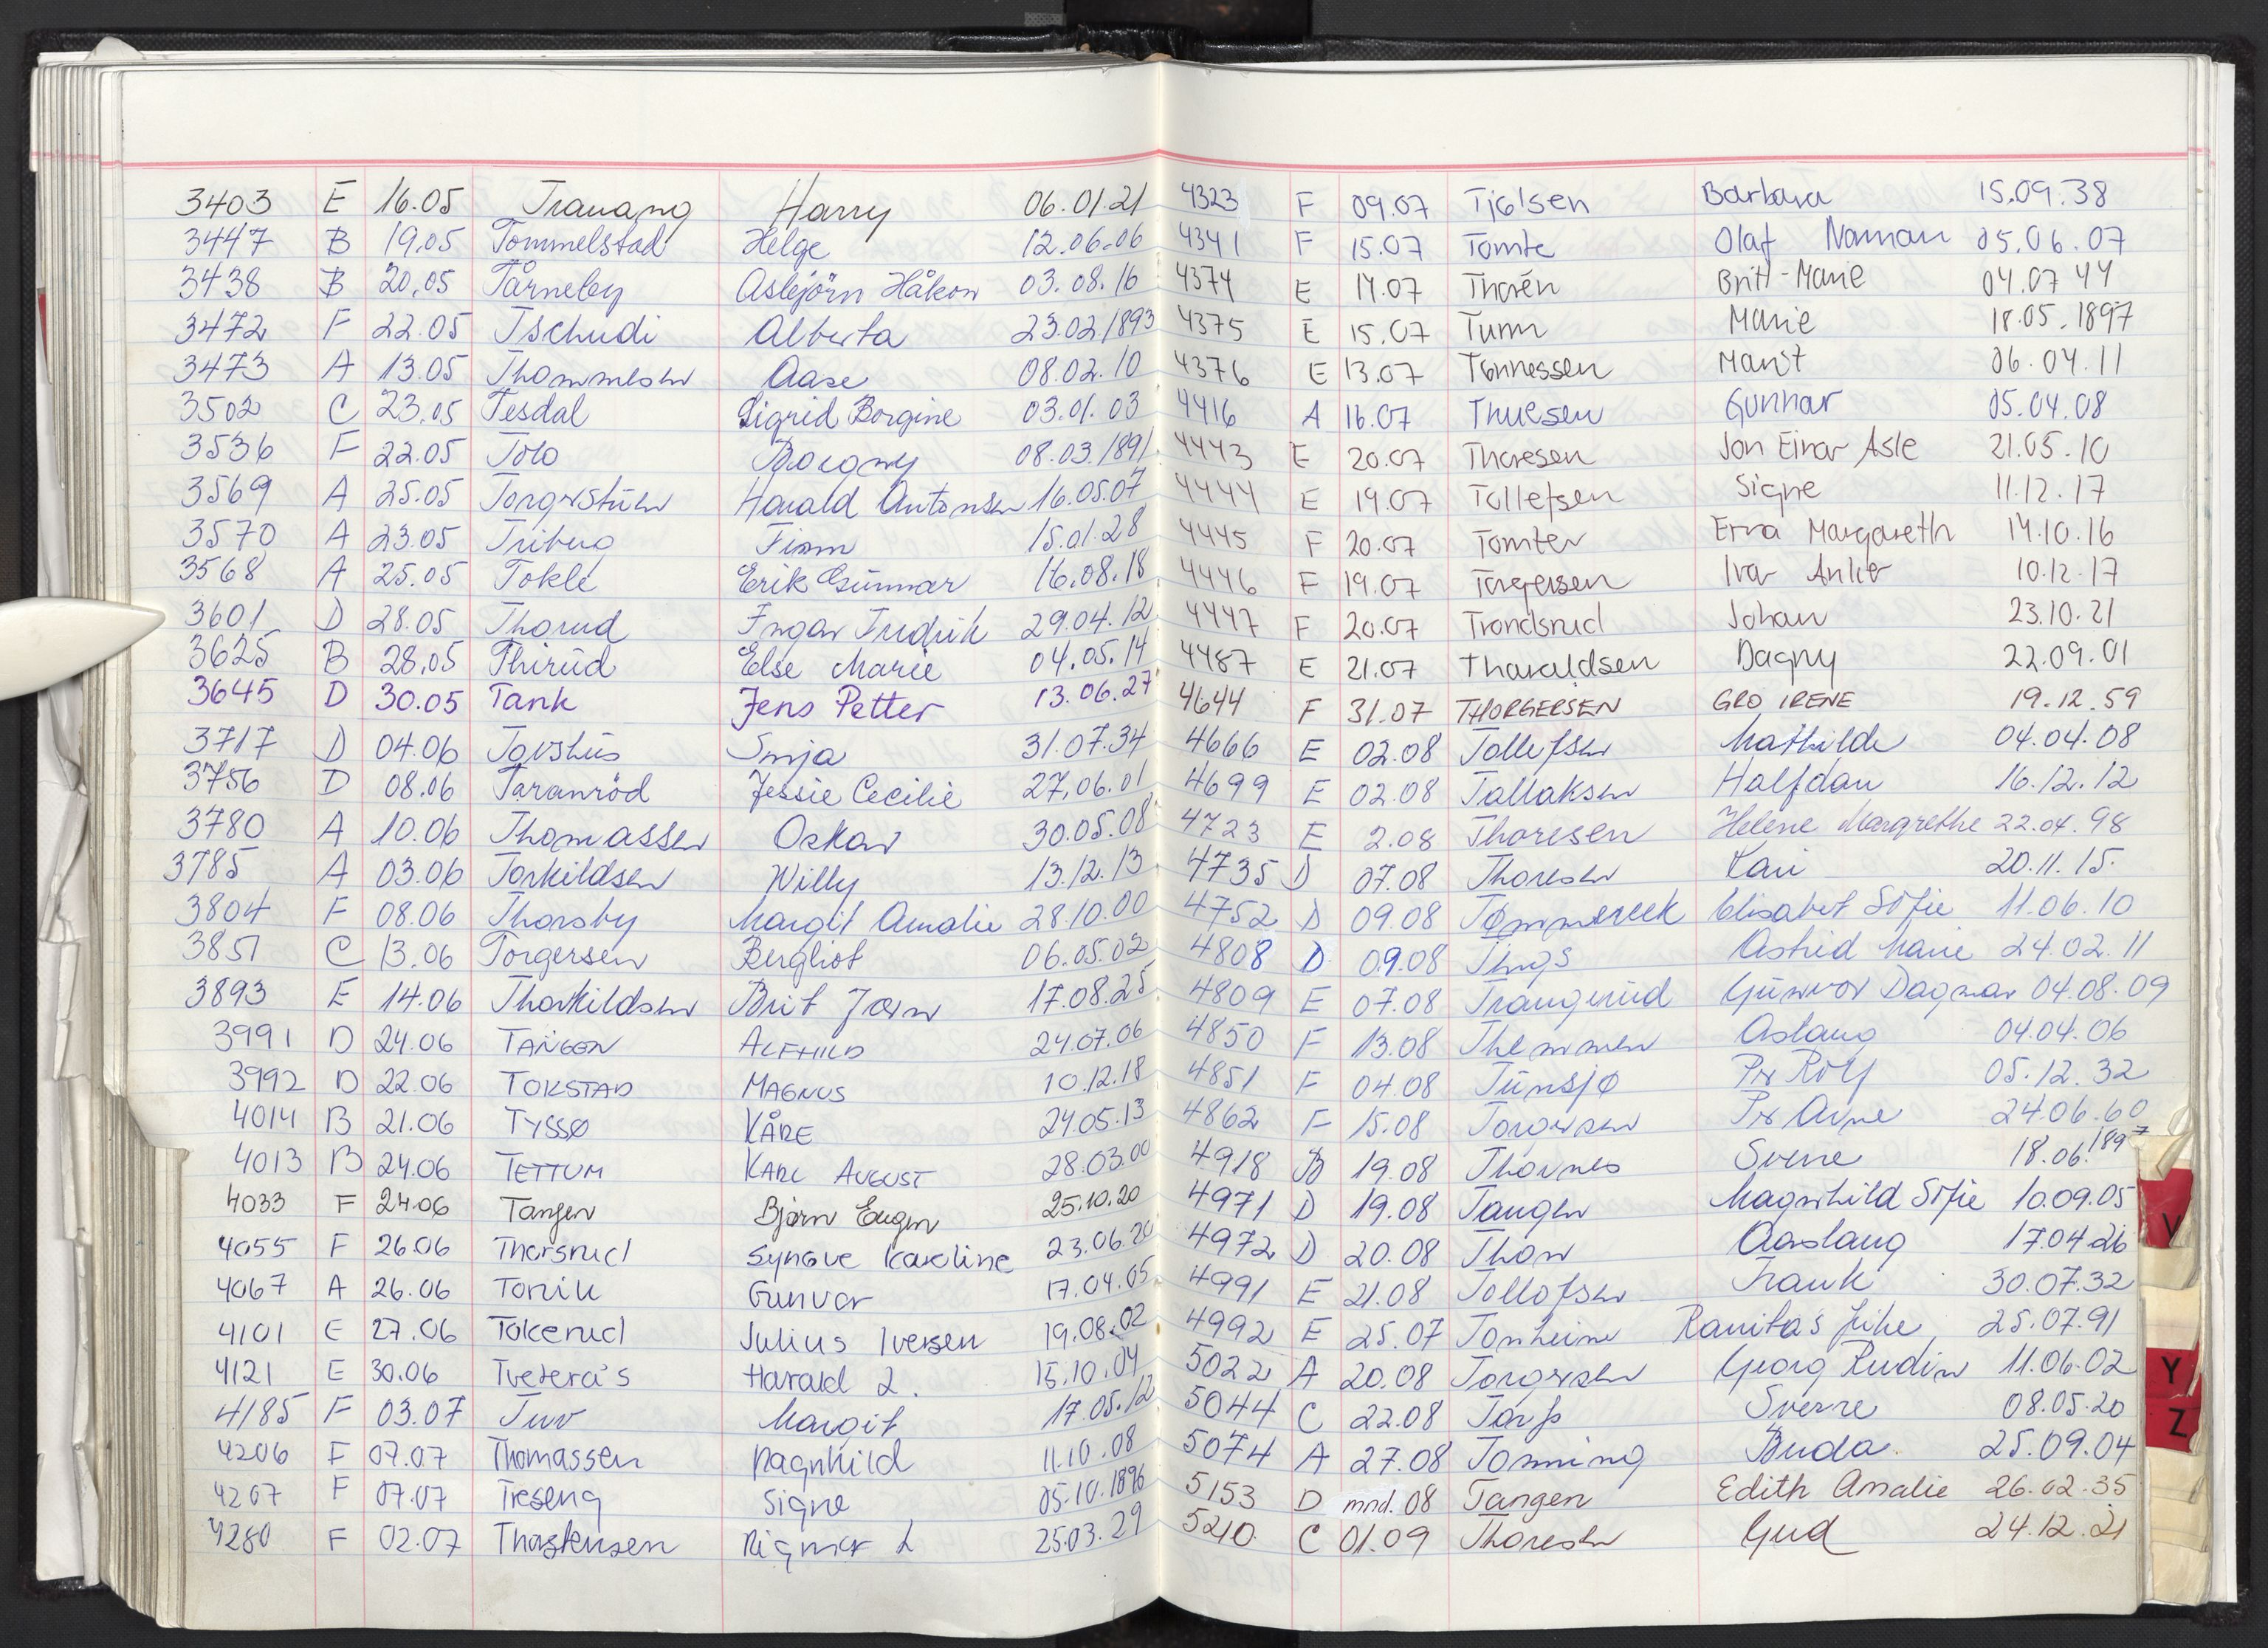 3403 E 16.05 Trauang Harry 06.01.21
3447 B 19.05 Tommelstad Helge 12.06.06
3438 B 20.05 Tårneby Asbjörn Håkon 03.08.16
3472 F 22.05 Tschudi Alberta 23.02.1893
3473 A 13.05 Thommesen Aase 08.02.10
3502 C 23.05 Tesdal Sigrid Borgine 03.01.03
3536 F 22.05 Tolo Borgny 08.03.1891
3569 A 25.05 Torgerstuen Harald Antonsen 16.05.07
3570 A 23.05 Triberg Finn 15.01.28
3568 A 25.05 Tokle Erik Gunnar 16.08.18
3601 D 28.05 Thorud Ingar Fredrik 29.04.12
3625 B 28.05 Thirud Else Marie 04.05.14
3645 D 30.05 Tank Jens Petter 13.06.27
3717 D 04.06 Torshus Sonja 31.07.34
3756 D 08.06 Taranröd Jessie Cecilie 27.06.01
3780 A 10.06 Thomassen Oskar 30.05.08
3785 A 03.06 Torkildsen Willy 13.12.13
3804 F 08.06 Thorsby Margit Amalie 28.10.00
3851 C 13.06 Torgersen Bergliot 06.05.02
3893 E 14.06 Thorkildsen Brit Jorun 17.08.25
3991 D 24.06 TANGEN ALFHILD 24.07.06
3992 D 22.06 TOKSTAD MAGNUS 10.12.18
4014 B 21.06 TYSSØ KÅRE 24.05.13
4013 B 24.06 TETTUM KARL AUGUST 28.03.00
4033 F 24.06 Tangen Bjørn Eugen 25.10.20
4055 F 26.06 Thorsrud Synøve Karoline 23.06.20
4067 A 26.06 Torvik Gunvor 17.04.05
4101 E 27.06 Tokerud Julius Iversen 19.08.02
4121 E 30.06 Tveterås Harald L. 15.10.04
4185 F 03.07 Tuv Margit 17.05.12
4206 F 07.07 Thomassen Ragnhild 11.10.08
4207 F 07.07 Treseng Signe 05.10.1896
4280 F 02.07 Thorstensen Rigmor L 25.03.29
4323 F 09.07 Tjølsen Barbara 15.09.38
4341 F 15.07 Tomte Olaf Norman 05.06.07
4374 E 14.07 Thorén Britt-Marie 04.07.44
4375 E 15.07 Tunn Marie 18.05.1897
4376 E 13.07 Tønnessen Marit 06.04.11
4416 A 16.07 Thuesen Gunnar 05.04.08
4443 E 20.07 Thoresen Jon Einar Asle 21.05.10
4444 E 19.07 Tollefsen Signe 11.12.17
4445 F 20.07 Tomter Erna Margareth 14.10.16
4446 F 19.07 Torgersen Ivar Anker 10.12.17
4447 F 20.07 Trondsrud Johan 23.10.21
4487 E 21.07 Tharaldsen Dagny 22.09.01
4644 F 31.07 THORGERSEN GRO IRENE 19.12.59
4666 E 02.08 Tollefsen Mathilde 04.04.08
4699 E 02.08 Tallaksen Halfdan 16.12.12
4723 E 2.08 Thoresen Helene Margrethe 22.04.98
4735 D 07.08 Thoresen Kari 20.11.15.
4752 D 09.08 Tømmereek Elisabet Sofie 11.06.10
4808 D 09.08 Things Astrid Marie 24.02.11
4809 E 07.08 Traugerud Gunvor Dagmar 04.08.09
4850 F 13.08 Themmen Aslaug 04.04.06
4851 F 04.08 Tunsjø Per Rolf 05.12.32
4862 F 15.08 Torgersen Per Arne 24.06.60
4918 B 19.08 Thornes Sverre 18.06.1897
4971 D 19.08 Tangen Magnhild Sofie 10.09.05
4972 D 20.08 Thon Aaslaug 17.04.26
4991 E 21.08 Tollofsen Frank 30.07.32
4992 E 25.07 Tonheim 25.07.91
5022 A 20.08 Torgersen Georg Rudin 11.06.02
5044 C 22.08 Torp Sverre 08.05.20
5074 A 27.08 Tonning Buda 25.09.04
5153 D mnd. 08 Tangen Edith Amalie 26.02.35
5210 C 01.09 Thoresen Gud 24.12.21
V
Y
Z